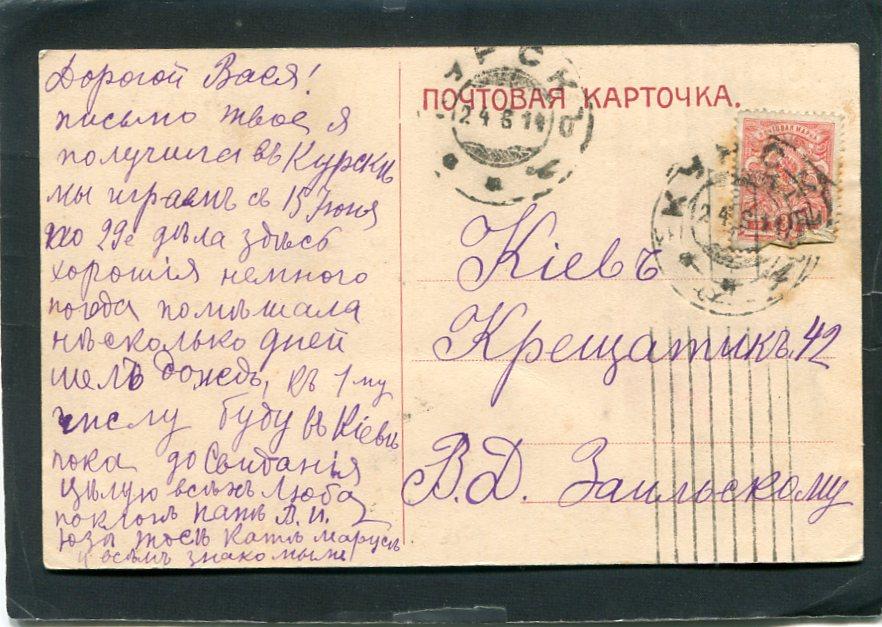 Дорогой Вася!
письмо твое я
получила въ Курскѣ
мы играемъ съ 15 Іюня
по 29е дѣла здѣсь
хорошія немного
погода помѣшала
нѣсколько дней
шелъ дождь, къ 1-му
числу буду въ Кіевѣ
пока до Свиданія
цѣлую всѣхъ Люба
поклонъ В. И.
Катѣ Марусѣ
и всѣмъ знакомымъ
ПОЧТОВАЯ КАРТОЧКА.
КУРСКЪ
24 6 14
ПОЧТОВАЯ МАРКА
КУРСКЪ
Кіевъ
Крещатикъ. 42
В. Д. Заильскому